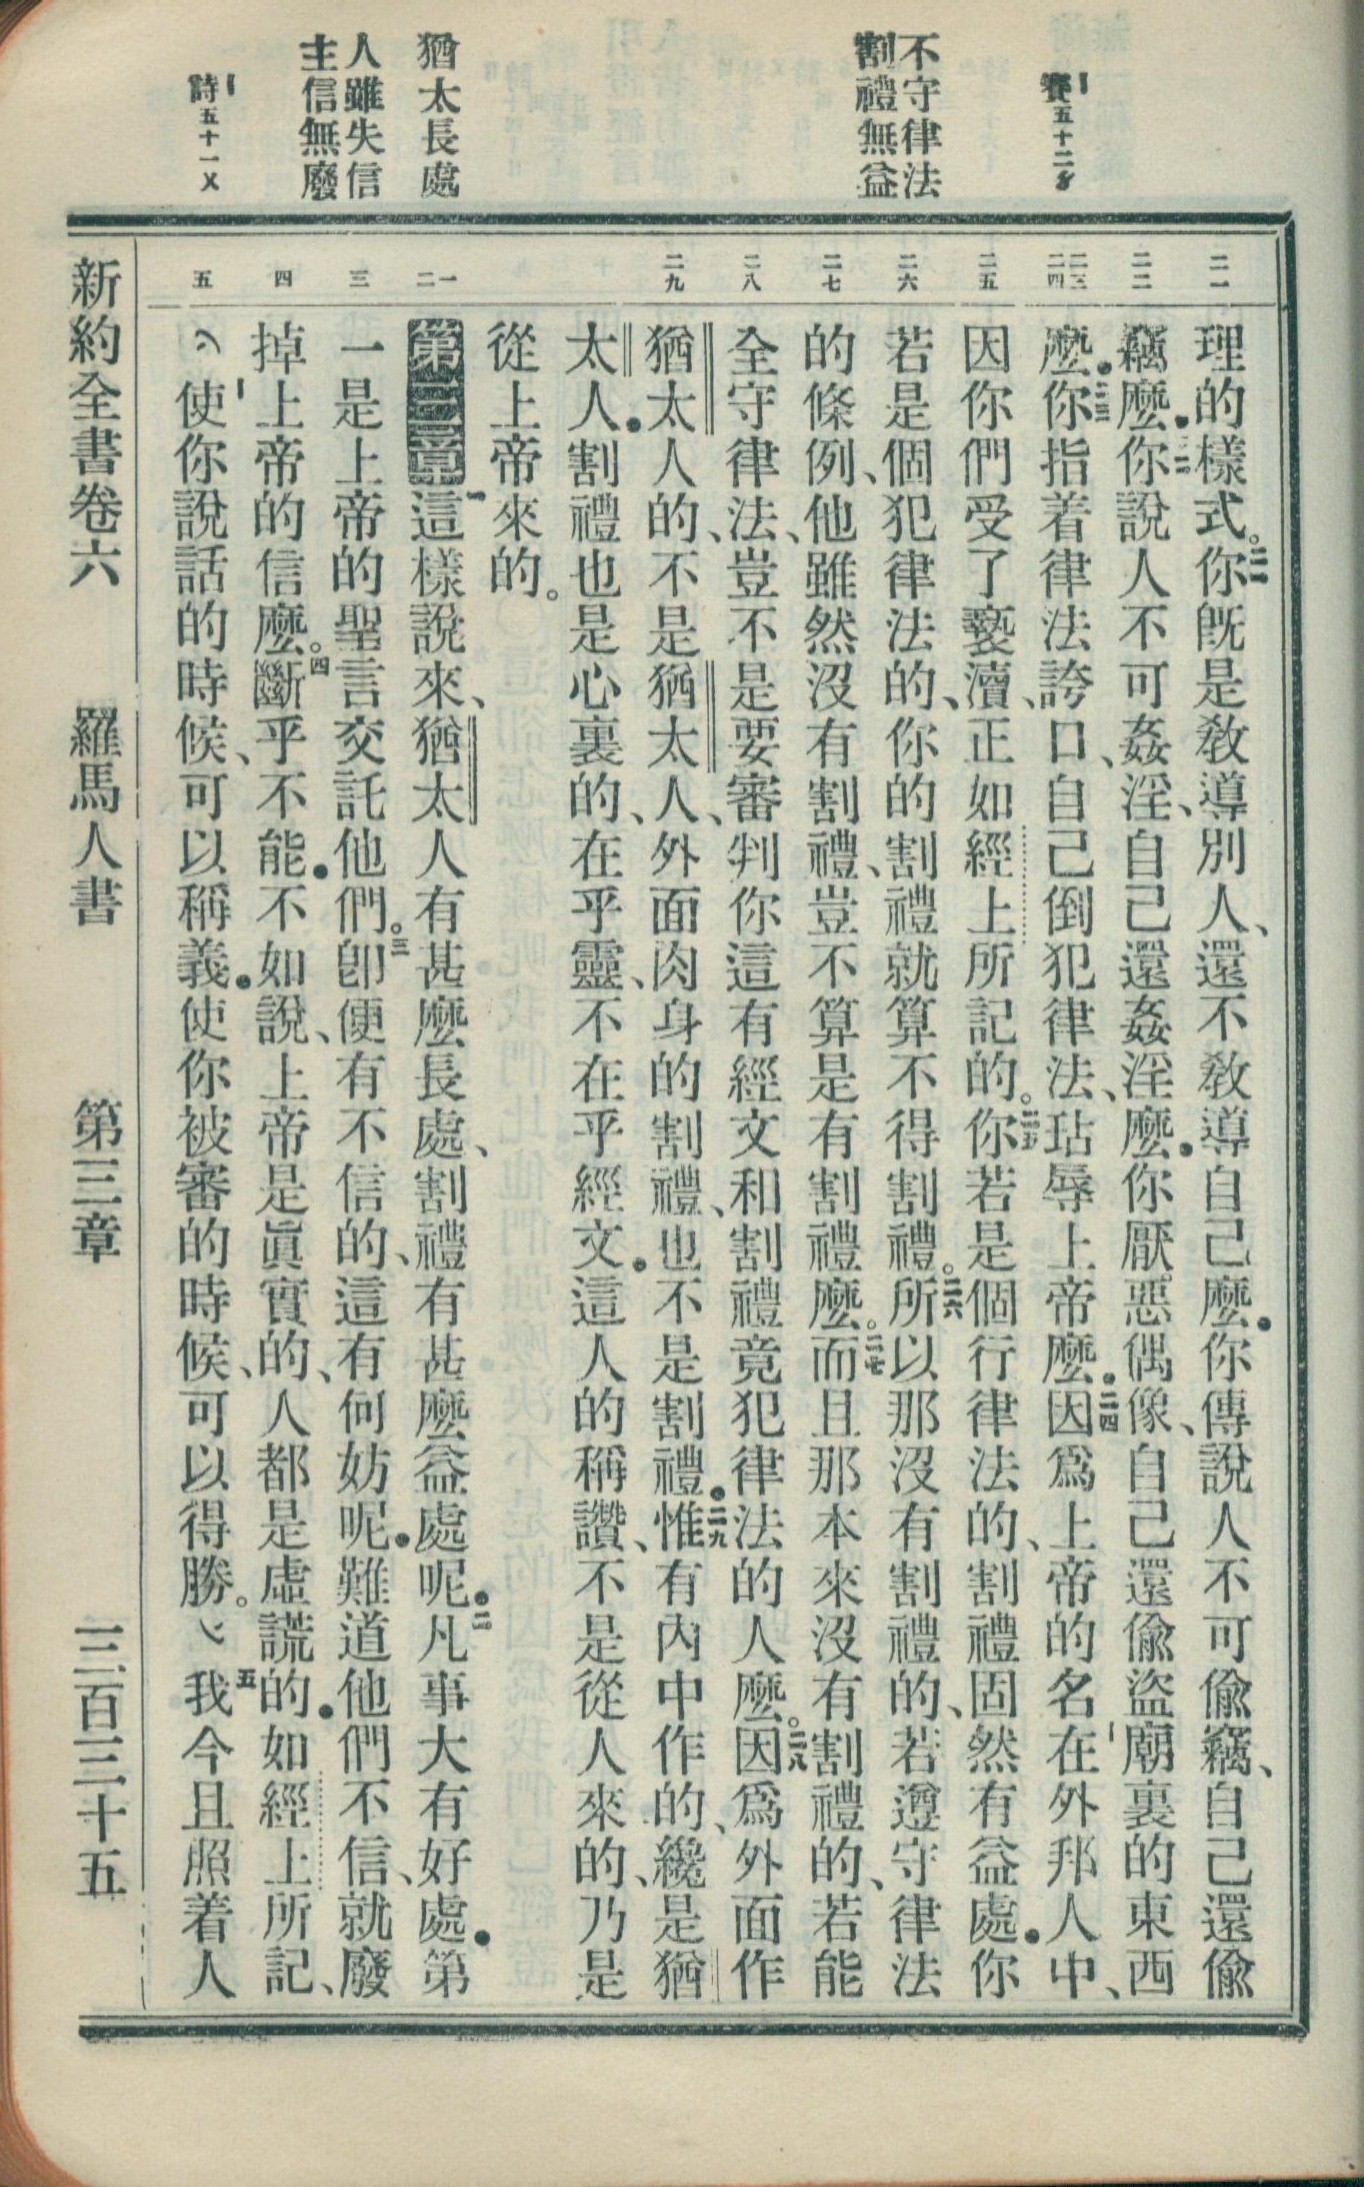 賽五十二5
不守律法
割禮無益
猶太長處
人雖失信
主信無廢
詩五十一4
二一
二二
二三
二四
二五
二六
二七
二八
二九
一
二
三
四
五
理的樣式。二一你旣是敎導別人、還不敎導自己麼．你傳說人不可偷竊、自己還偷
竊麼．二二你說人不可姦淫、自己還姦淫麼．你厭惡偶像、自己還偷盜廟裏的東西
麼．二三你指着律法誇口、自己倒犯律法、玷辱上帝麼．二四因爲上帝的名在外邦人中、
因你們受了褻瀆、正如經上所記的。二五你若是個行律法的、割禮固然有益處．你
若是個犯律法的、你的割禮就算不得割禮。二六所以那沒有割禮的、若遵守律法
的條例、他雖然沒有割禮、豈不算是有割禮麼。二七而且那本來沒有割禮的、若能
全守律法、豈不是要審判你這有經文和割禮竟犯律法的人麼。二八因爲外面作
猶太人的、不是猶太人、外面肉身的割禮、也不是割禮．二九惟有內中作的、纔是猶
太人．割禮也是心裏的、在乎靈、不在乎經文．這人的稱讚、不是從人來的、乃是
從上帝來的。
第三章一這樣說來、猶太人有甚麼長處、割禮有甚麼益處呢．二凡事大有好處．第
一是上帝的聖言交託他們。三卽便有不信的、這有何妨呢．難道他們不信、就廢
掉上帝的信麼。四斷乎不能．不如說、上帝是眞實的、人都是虛謊的．如經上所記、
（使你說話的時候、可以稱義．使你被審的時候、可以得勝。）五我今且照着人
新約全書卷六　羅馬人書　第三章　三百三十五